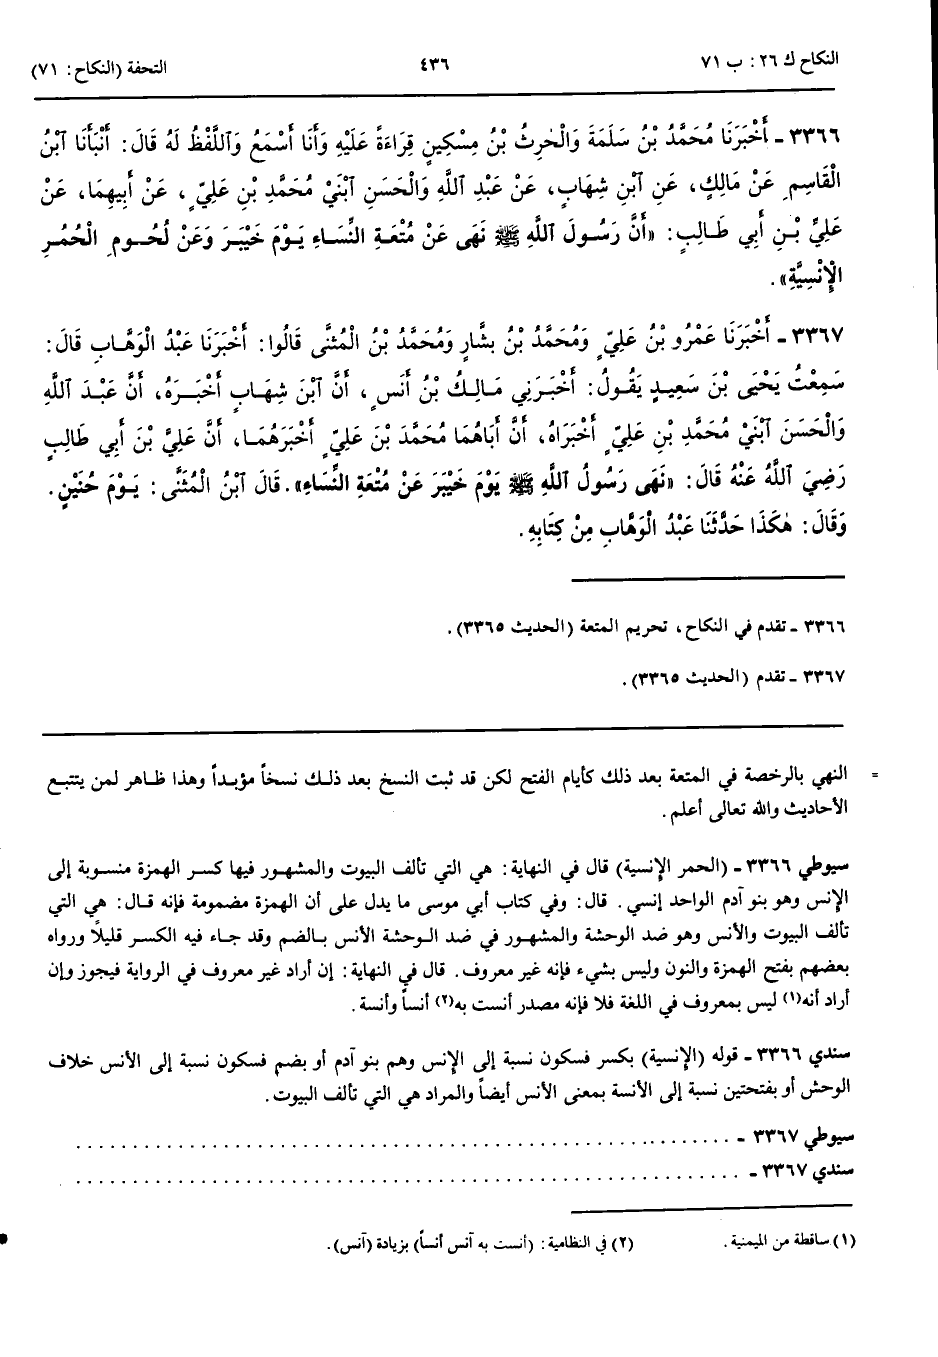 النكاح ك ٢٦: ب ٧١ ٤٣٦ التحفة (النكاح: ٧١)
٣٣٦٦ - أَخْبَرَنَا مُحَمَّدُ بْنُ سَلَمَةَ وَالْحٰرِثُ بْنُ مِسْكِينٍ قِرَاءَةً عَلَيْهِ وَأَنَا أَسْمَعُ وَٱللَّفْظُ لَهُ قَالَ: أَنْبَأَنَا ٱبْنُ
الْقَاسِمِ عَنْ مَالِكٍ، عَنِ ٱبْنِ شِهَابٍ، عَنْ عَبْدِ ٱللَّهِ وَالْحَسَنِ ٱبْنَيْ مُحَمَّدِ بْنِ عَلِيٍّ، عَنْ أَبِيهِمَا، عَنْ
عَلِيِّ بْنِ أَبِي طَالِبٍ: «أَنَّ رَسُولَ ٱللَّهِ ﷺ نَهَى عَنْ مُتْعَةِ النِّسَاءِ يَوْمَ خَيْبَرَ وَعَنْ لُحُومِ الْحُمُرِ
الْإِنْسِيَّةِ».
٣٣٦٧ - أَخْبَرَنَا عَمْرُو بْنُ عَلِيٍّ وَمُحَمَّدُ بْنُ بَشَّارٍ وَمُحَمَّدُ بْنُ الْمُثَنَّى قَالُوا: أَخْبَرَنَا عَبْدُ الْوَهَّابِ قَالَ:
سَمِعْتُ يَحْيَى بْنَ سَعِيدٍ يَقُولُ: أَخْبَرَنِي مَالِكُ بْنُ أَنَسٍ، أَنَّ ٱبْنَ شِهَابٍ أَخْبَرَهُ، أَنَّ عَبْدَ ٱللَّهِ
وَالْحَسَنَ ٱبْنَيْ مُحَمَّدِ بْنِ عَلِيٍّ أَخْبَرَاهُ، أَنَّ أَبَاهُمَا مُحَمَّدَ بْنَ عَلِيٍّ أَخْبَرَهُمَا، أَنَّ عَلِيَّ بْنَ أَبِي طَالِبٍ
رَضِيَ ٱللَّهُ عَنْهُ قَالَ: «نَهَى رَسُولُ ٱللَّهِ ﷺ يَوْمَ خَيْبَرَ عَنْ مُتْعَةِ النِّسَاءِ». قَالَ ٱبْنُ الْمُثَنَّى: يَوْمَ حُنَيْنٍ.
وَقَالَ: هٰكَذَا حَدَّثَنَا عَبْدُ الْوَهَّابِ مِنْ كِتَابِهِ.
٣٣٦٦ - تقدم في النكاح، تحريم المتعة (الحديث ٣٣٦٥).
٣٣٦٧ - تقدم (الحديث ٣٣٦٥).
= النهي بالرخصة في المتعة بعد ذلك كأيام الفتح لكن قد ثبت النسخ بعد ذلك نسخاً مؤبداً وهذا ظاهر لمن يتتبع
الأحاديث والله تعالى أعلم.
سيوطي ٣٣٦٦ - (الحمر الإنسية) قال في النهاية: هي التي تألف البيوت والمشهور فيها كسر الهمزة منسوبة إلى
الإنس وهو بنو آدم الواحد إنسي. قال: وفي كتاب أبي موسى ما يدل على أن الهمزة مضمومة فإنه قال: هي التي
تألف البيوت والأنس وهو ضد الوحشة والمشهور في ضد الوحشة الأنس بالضم وقد جاء فيه الكسر قليلاً ورواه
بعضهم بفتح الهمزة والنون وليس بشيء فإنه غير معروف. قال في النهاية: إن أراد غير معروف في الرواية فيجوز وإن
أراد أنه(١) ليس بمعروف في اللغة فلا فإنه مصدر أنست به(٢) أنساً وأنسة.
سندي ٣٣٦٦ - قوله (الإنسية) بكسر فسكون نسبة إلى الإنس وهم بنو آدم أو بضم فسكون نسبة إلى الأنس خلاف
الوحش أو بفتحتين نسبة إلى الأنسة بمعنى الأنس أيضاً والمراد هي التي تألف البيوت.
سيوطي ٣٣٦٧ - ........................................................
سندي ٣٣٦٧ - ........................................................
(١) ساقطة من الميمنية. (٢) في النظامية: (أنست به آنس أنساً) بزيادة (آنس).